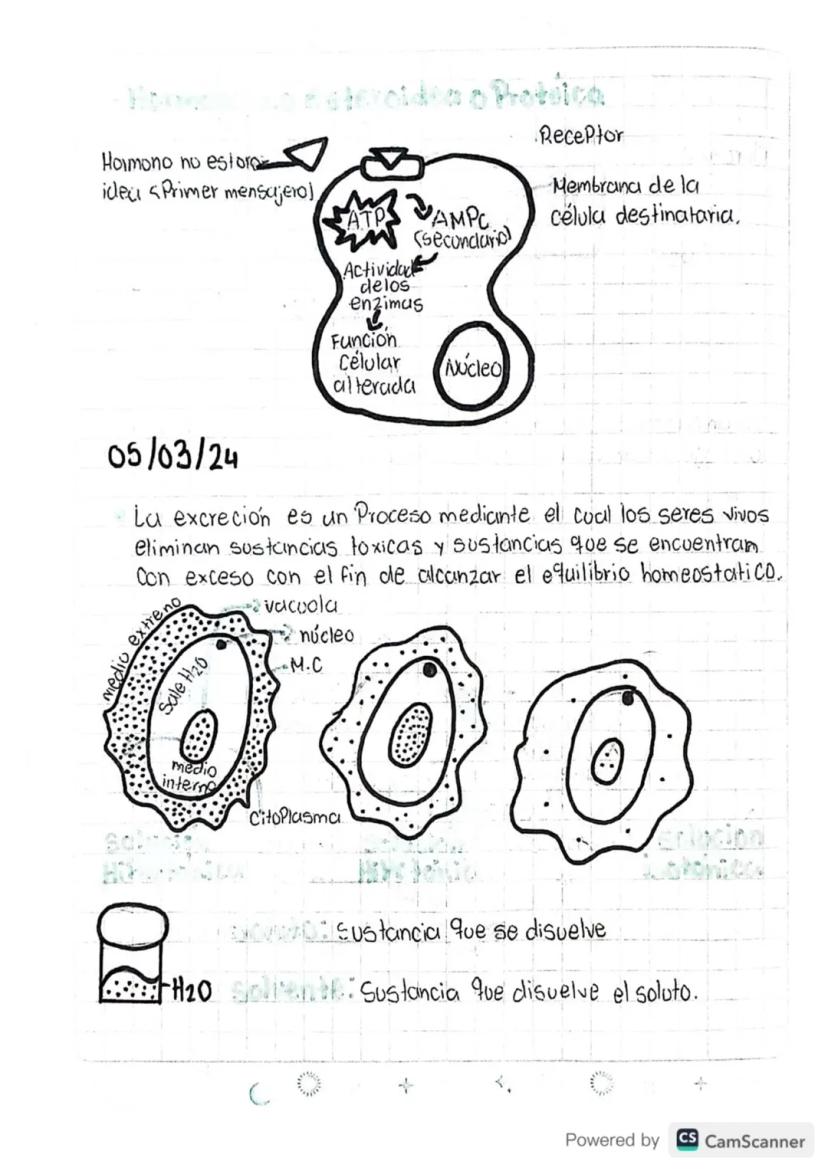 Esteroidea o Protéica
Receptor
Hormono no estoro-
idea (Primer mensajero)
Membrana de la
célula destinataria.
ATP
AMPc
(secundario)
Actividad
de los
enzimas
Función
Célular
alterada
Núcleo
05/03/24
La excreción es un Proceso mediante el cual los seres vivos
eliminan sustancias toxicas y sustancias que se encuentran
con exceso con el fin de alcanzar el equilibrio homeostatico.
medio extreno
vacuola
núcleo
M.C
Sale H2O
medio
interno
Citoplasma
solución
isotonica
soluto: Sustancia que se disuelve
H2O
solvente: Sustancia que disuelve el soluto.
Powered by CS CamScanner